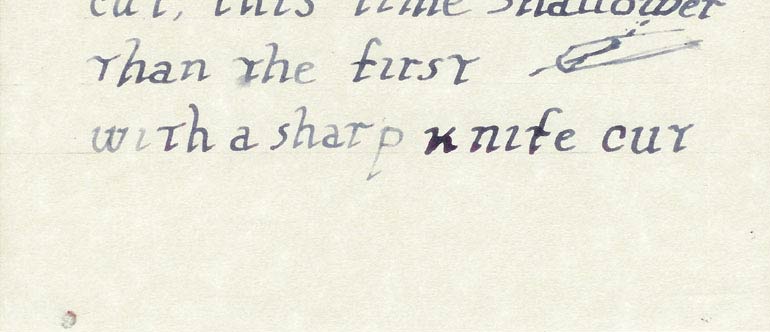 cut, this time shallower
than the first
with a sharp knife cut